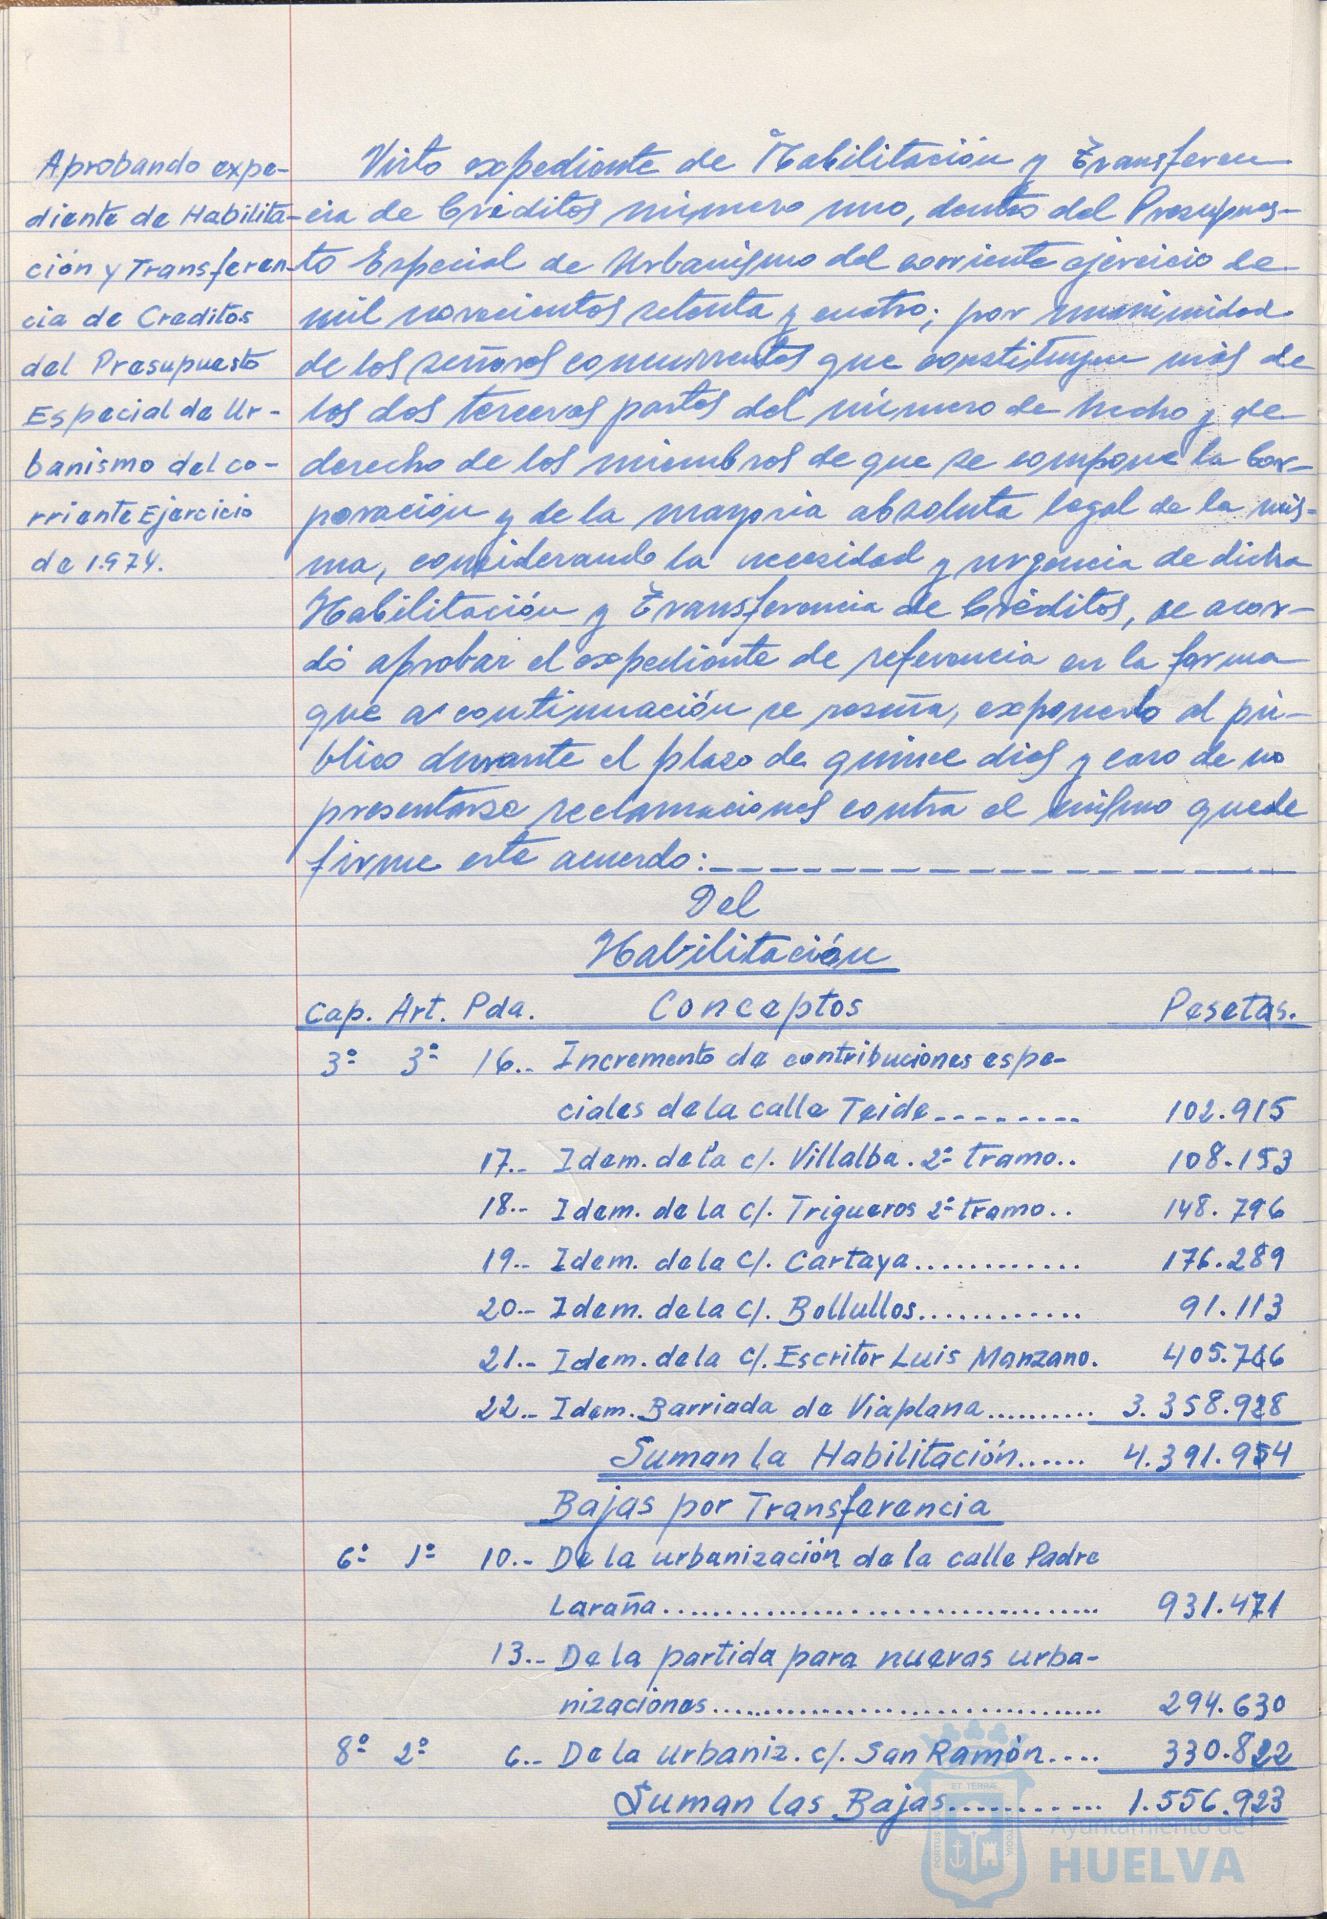 Aprobando expe-
diente de Habilita-
ción y Transferen-
cia de Creditos
del Presupuesto
Especial de Ur-
banismo del co-
rriente Ejercicio
de 1.974.
Visto expediente de Habilitación y Transferen
cia de Créditos número uno, dentro del Presupues-
to Especial de Urbanismo del corriente ejercicio de
mil novecientos setenta y cuatro; por unanimidad
de los señores concurrentes que constituyen más de
las dos terceras partes del número de hecho y de
derecho de los miembros de que se compone la Cor-
poración y de la mayoria absoluta legal de la mis-
ma, considerando la necesidad y urgencia de dicha
Habilitación y Transferencia de Créditos, se acor-
dó aprobar el expediente de referencia en la forma
que a continuación se reseña, exponerlo al pú-
blico durante el plazo de quince dias y caso de no
presentarse reclamaciones contra el mismo quede
firme este acuerdo:
Del
Habilitación
Cap. Art. Pda. Conceptos Pesetas.
3º 3º 16.- Incremento de contribuciones espe-
ciales de la calle Teide-------- 102.915
17.- Idem. de la c/. Villalba. 2º tramo.. 108.153
18.- Idem. de la c/. Trigueros 2º tramo.. 148.796
19.- Idem. de la c/. Cartaya............ 176.289
20.- Idem. de la c/. Bollullos............ 91.113
21.- Idem. de la c/. Escritor Luis Manzano. 405.766
22.- Idem. Barriada de Viaplana.......... 3.358.928
Suman la Habilitación...... 4.391.954
Bajas por Transferencia
6º 1º 10.- De la urbanización de la calle Padre
Laraña.................................... 931.471
13.- De la partida para nuevas urba-
nizaciones................................ 294.630
8º 2º 6.- De la Urbaniz. c/. San Ramón.... 330.822
Suman las Bajas............ 1.556.923
ET TERRÆ
Ayuntamiento de
HUELVA